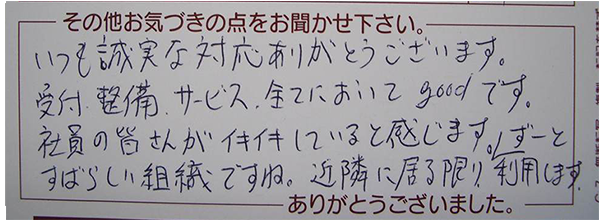 その他お気づきの点をお聞かせ下さい。
いつも誠実な対応ありがとうございます。
受付、整備、サービス、全てにおいて goodです。
社員の皆さんがイキイキしていると感じます。ずーと
すばらしい組織ですね。近隣に居る限り利用します
ありがとうございました。